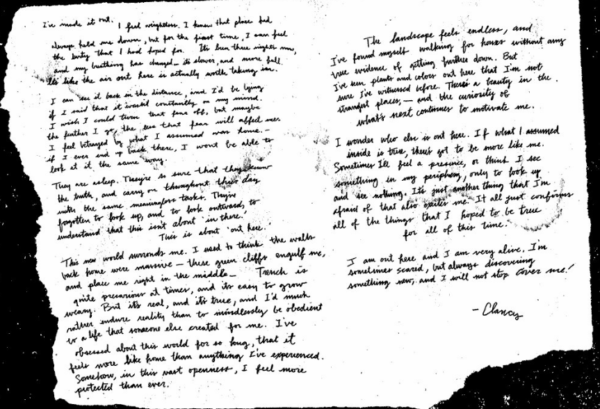 I've made it out. I feel weightless. I knew that place had
always held me down, but for the first time, I can feel
the body that I had hoped for. It's been three nights now,
and my breathing has changed – it's slower, and more full.
It's like the air out here is actually worth taking in.
I can see it back in the distance, and I'd be lying
if I said that it wasn't constantly on my mind.
I wish I could turn that fear off, but maybe
the further I go, the less that fear will affect me.
I feel betrayed by what I assumed was home –
if I ever end up back there, I won't be able to
look at it the same way.
They are asleep. They're so sure that they know
the truth, and carry on throughout their day
with the same meaningless tasks. They've
forgotten to look up and to look outward, to
understand that this isn't about 'in there.'
This is about 'out here.'
This new world surrounds me. I used to think the walls
back home were massive – these green cliffs engulf me,
and place me right in the middle – Trench is
quite precarious at times, and its easy to grow
weary. But it's real, and it's true, and I'd much
rather endure reality than to mindlessly be obedient
to a life that someone else created for me. I've
obsessed about this world for so long, that it
feels more like home than anything I've experienced.
Somehow, in this vast openness, I feel more
protected than ever.
The landscape feels endless, and
I've found myself walking for hours without any
true evidence of getting further down. But
I've seen plants and colors out here that I'm not
sure I've witnessed before. There's a beauty in the
strangest places, – and the curiosity of
what's next continues to motivate me.
I wonder who else is out here. If what I assumed
inside is true, there's got to be more like me.
Sometimes I'll feel a presence, or think I see
something in my periphery, only to look up
and see nothing. It's just another thing that I'm
afraid of that also excites me. It all just confirms
all of the things that I hoped to be true
for all of this time.
I am out here and I am very alive. I'm
sometimes scared, but always discovering
something new, and I will not stop cover me!
– Clancy